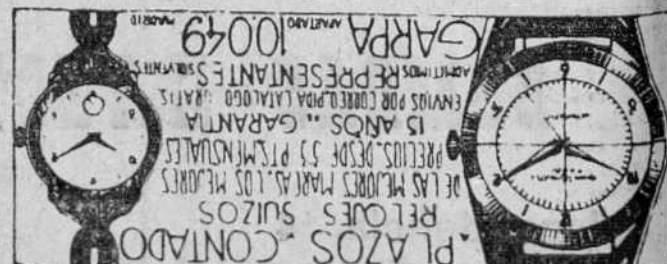 PLAZOS - CONTADO
RELOJES SUIZOS
DE LAS MEJORES MARCAS. LOS MEJORES
PRECIOS. DESDE 55 PTS. MENSUALES
15 AÑOS " GARANTIA
ENVIOS POR CORREO. PIDA CATALOGO GRATIS
ADMITIMOS REPRESENTANTES SOLVENTES
GARPA APARTADO 10.049 MADRID